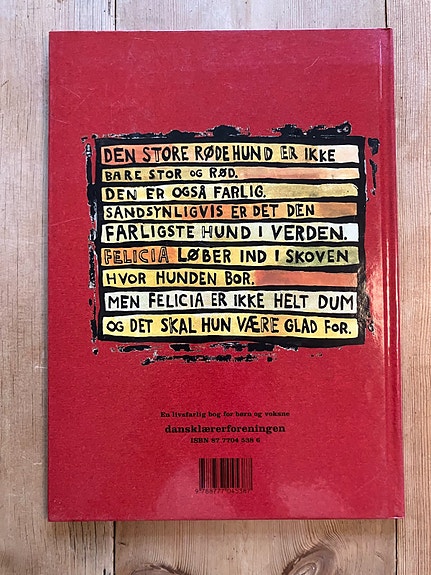 DEN STORE RØDE HUND ER IKKE
BARE STOR OG RØD.
DEN ER OGSÅ FARLIG.
SANDSYNLIGVIS ER DET DEN
FARLIGSTE HUND I VERDEN.
FELICIA LØBER IND I SKOVEN
HVOR HUNDEN BOR.
MEN FELICIA ER IKKE HELT DUM
OG DET SKAL HUN VÆRE GLAD FOR.
En livsfarlig bog for børn og voksne
dansklærerforeningen
ISBN 87 7704 538 6
9788777045387